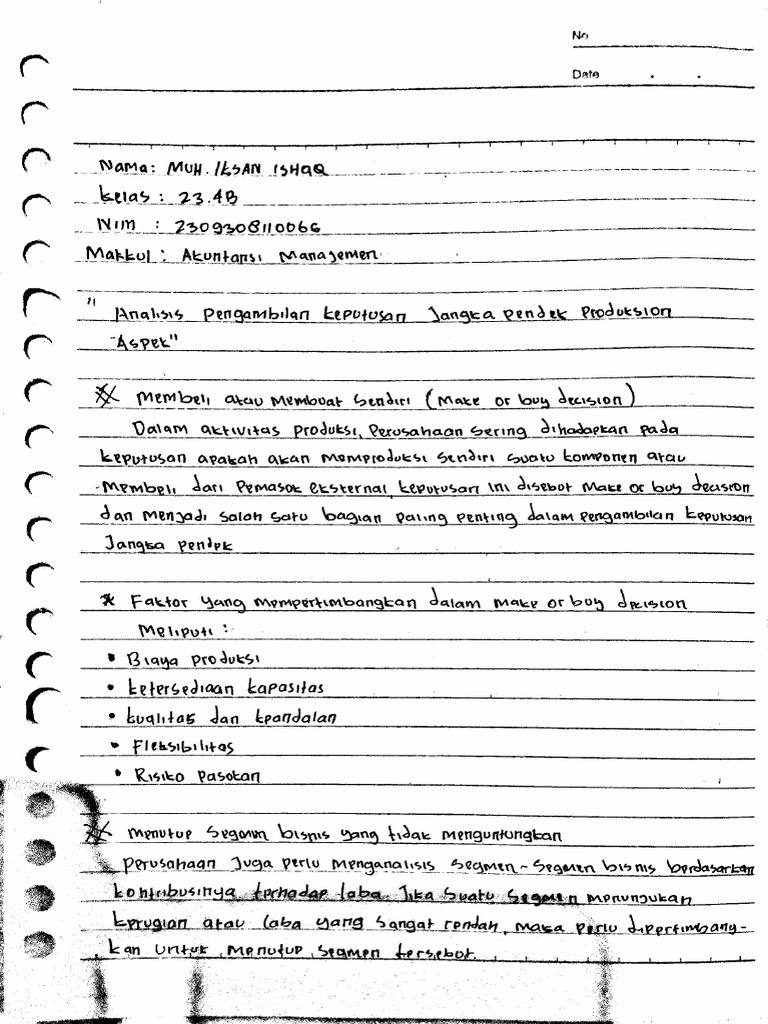 No
Date . .
Nama: MUH. IKSAN ISHAQ
Kelas : 23.4B
Nim : 2309308110066
Makkul : Akuntansi Manajemen
" Analisis Pengambilan keputusan Jangka pendek Produksion
Aspek"
Membeli atau Membuat sendiri (Make or buy decision)
Dalam aktivitas produksi, perusahaan sering dihadapkan pada
keputusan apakah akan memproduksi sendiri suatu komponen atau
Membeli dari Pemasok eksternal, keputusan ini disebut Make or buy decision
dan menjadi salah satu bagian paling penting dalam pengambilan keputusan
Jangka pendek
* Faktor yang mempertimbangkan dalam make or buy decision
Meliputi :
• Biaya produksi
• ketersediaan kapasitas
• kualitas dan keandalan
• Fleksibilitas
• Risiko Pasokan
menutup segmen bisnis yang tidak menguntungkan
perusahaan Juga perlu menganalisis segmen-segmen bisnis berdasarkan
kontribusinya terhadap laba. Jika suatu segmen menunjukan
kerugian atau laba yang sangat rendah, maka perlu dipertimbang-
kan untuk menutup segmen tersebut.